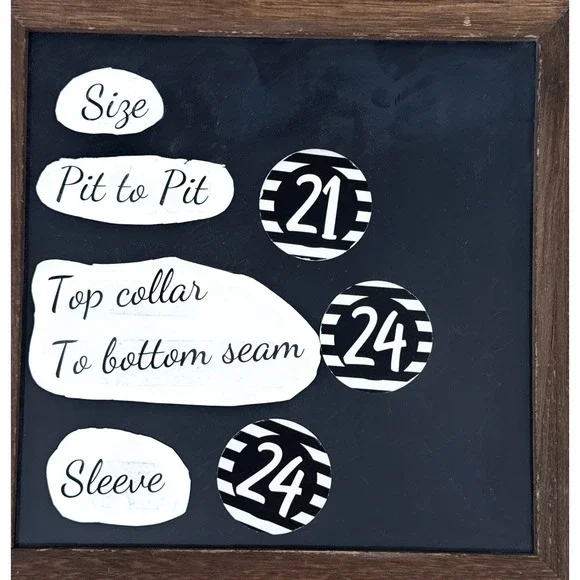 Size
Pit to Pit 21
Top collar
To bottom seam 24
Sleeve 24